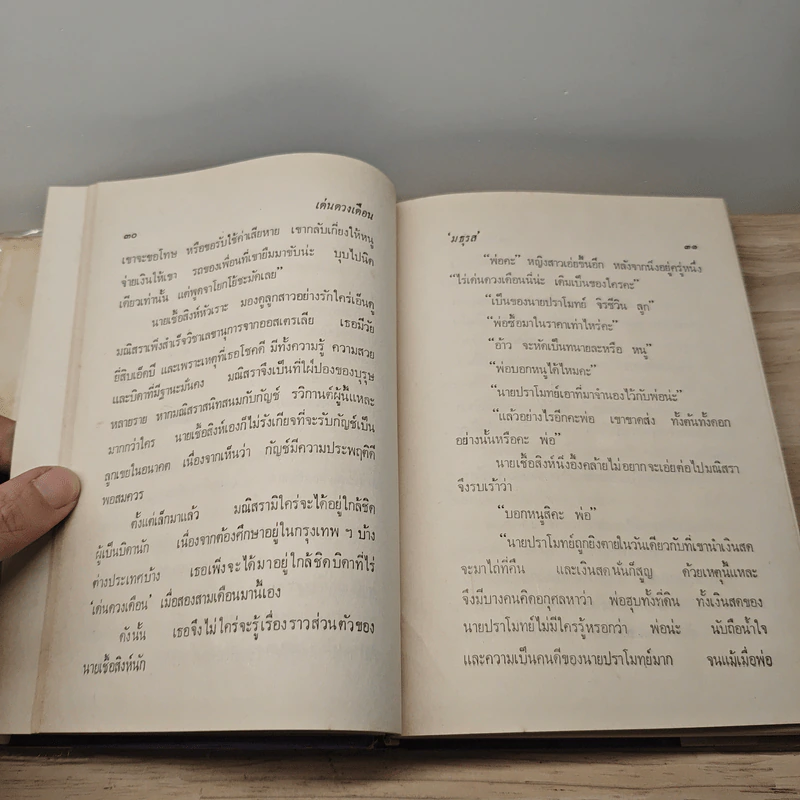 ๓๐
เด่นดวงเดือน
เขาจะขอโทษ หรือขอรับใช้ค่าเสียหาย เขากลับเกี่ยงให้หนู
จ่ายเงินให้เขา รถของเพื่อนที่เขายืมมาขับน่ะ บุบไปนิด
เดียวเท่านั้น แต่พูดจาโยกโย้ซะมัดเลย”
นายเชื้อสิงห์หัวเราะ มองดูลูกสาวอย่างรักใคร่เอ็นดู
มณิสราเพิ่งสำเร็จวิชาเลขานุการจากออสเตรเลีย เธอมีวัย
ยี่สิบเอ็ดปี และเพราะเหตุที่เธอโชคดี มีทั้งความรู้ ความสวย
และบิดาที่มีฐานะมั่นคง มณิสราจึงเป็นที่ใฝ่ปองของบุรุษ
หลายราย หากมณิสราสนิทสนมกับกัญช์ รวิกานต์ผู้นี้แหละ
มากกว่าใคร นายเชื้อสิงห์เองก็ไม่รังเกียจที่จะรับกัญช์เป็น
ลูกเขยในอนาคต เนื่องจากเห็นว่า กัญช์มีความประพฤติดี
พอสมควร
ตั้งแต่เล็กมาแล้ว มณิสรามิใคร่จะได้อยู่ใกล้ชิด
ผู้เป็นบิดานัก เนื่องจากต้องศึกษาอยู่ในกรุงเทพ ฯ บ้าง
ต่างประเทศบ้าง เธอเพิ่งจะได้มาอยู่ใกล้ชิดบิดาที่ไร่
‘เด่นดวงเดือน’ เมื่อสองสามเดือนมานี้เอง
ดังนั้น เธอจึงไม่ใคร่จะรู้เรื่องราวส่วนตัวของ
นายเชื้อสิงห์นัก
‘มธุรส’
๓๑
“พ่อคะ” หญิงสาวเอ่ยขึ้นอีก หลังจากนิ่งอยู่ครู่หนึ่ง
“ไร่เด่นดวงเดือนนี่น่ะ เดิมเป็นของใครคะ”
“เป็นของนายปราโมทย์ จิรชีวิน ลูก”
“พ่อซื้อมาในราคาเท่าไหร่คะ”
“อ้าว จะหัดเป็นทนายละหรือ หนู”
“พ่อบอกหนูได้ไหมคะ”
“นายปราโมทย์เอาที่มาจำนองไว้กับพ่อน่ะ”
“แล้วอย่างไรอีกคะพ่อ เขาขาดส่ง ทั้งต้นทั้งดอก
อย่างนั้นหรือคะ พ่อ”
นายเชื้อสิงห์นิ่งอึ้งคล้ายไม่อยากจะเอ่ยต่อไปมณิสรา
จึงรบเร้าว่า
“บอกหนูสิคะ พ่อ”
“นายปราโมทย์ถูกยิงตายในวันเดียวกับที่เขานำเงินสด
จะมาไถ่ที่คืน และเงินสดนั่นก็สูญ ด้วยเหตุนี้แหละ
จึงมีบางคนคิดอกุศลหาว่า พ่อฮุบทั้งที่ดิน ทั้งเงินสดของ
นายปราโมทย์ไม่มีใครรู้หรอกว่า พ่อน่ะ นับถือน้ำใจ
และความเป็นคนดีของนายปราโมทย์มาก จนแม้เมื่อพ่อ